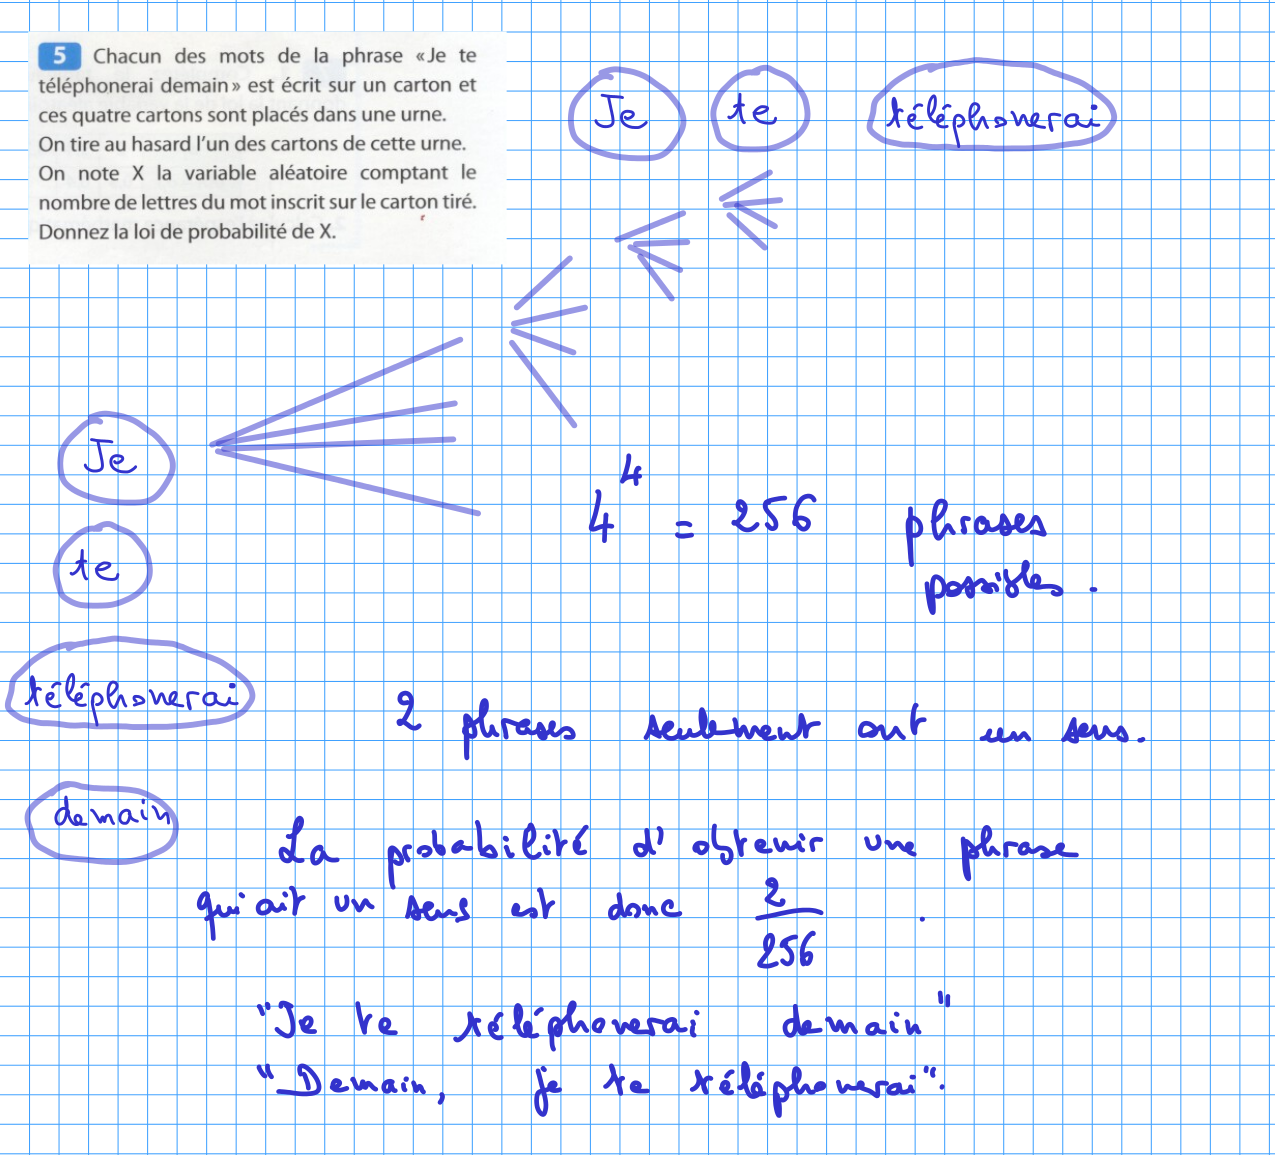 5 Chacun des mots de la phrase «Je te
téléphonerai demain» est écrit sur un carton et
ces quatre cartons sont placés dans une urne.
On tire au hasard l'un des cartons de cette urne.
On note X la variable aléatoire comptant le
nombre de lettres du mot inscrit sur le carton tiré.
Donnez la loi de probabilité de X.
Je te téléphonerai
Je
te
téléphonerai
demain
4^4 = 256 phrases
possibles.
2 phrases seulement ont un sens.
La probabilité d'obtenir une phrase
qui ait un sens est donc 2/256.
"Je te téléphonerai demain"
"Demain, je te téléphonerai".